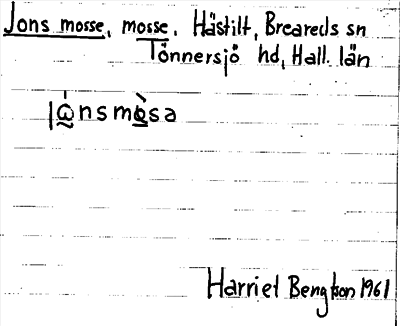 Jons mosse, mosse. Hästilt, Breareds sn
Tönnersjö hd, Hall. län
jώ̣nsmòsa
Harriet Bengtson 1961